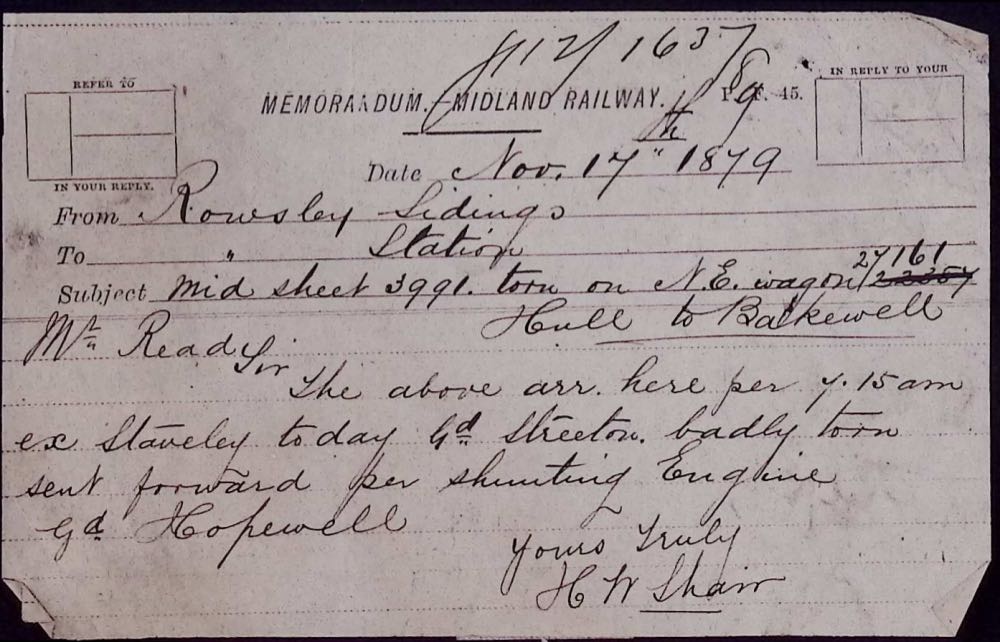 1637
REFER TO
IN REPLY TO YOUR
MEMORANDUM.—MIDLAND RAILWAY.
45.
IN YOUR REPLY.
Date Nov. 17th 1879
From Rowsley Sidings
To " Station
27161
Subject Mid sheet 3991. torn on N.E. wagon
Hull to Bakewell
Mr. Read
Sir
The above arr. here per 7.15 am
ex Staveley today Gd. Streeton. badly torn
sent forward per shunting Engine
Gd. Hopewell
Yours Truly
H W Shaw